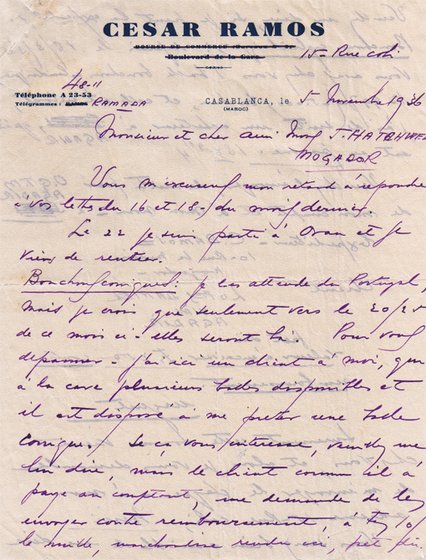 CESAR RAMOS
BOURSE DE COMMERCE
Boulevard de la Gare
15 - Rue
48-11
Téléphone A 23-53
Télégrammes : RAMADA
CASABLANCA, le 5 Novembre 1936
(MAROC)
Monsieur et cher ami Mons J. HATCHWEL
MOGADOR
Vous m'excuserez mon retard à repondre
à vos lettres du 16 et 18 - du mois dernier.
Le 22 je suis parti à Oran et je
viens de rentrer.
Bouchons coniques : je les attends du Portugal,
mais je crois que seulement vers le 20/25
de ce mois ci - elles seront là. Pour vous
depanner - j'ai ici un client à moi, que
à la cave plusieurs balles disponibles et
il est disposé à me preter une balle
conique. Si ça vous interesse, veuillez me
le dire, mais le client comme il à
payé au comptant, me demande de les
envoyer contre remboursement, à 10/
le mille, marchandise rendue ici, prét